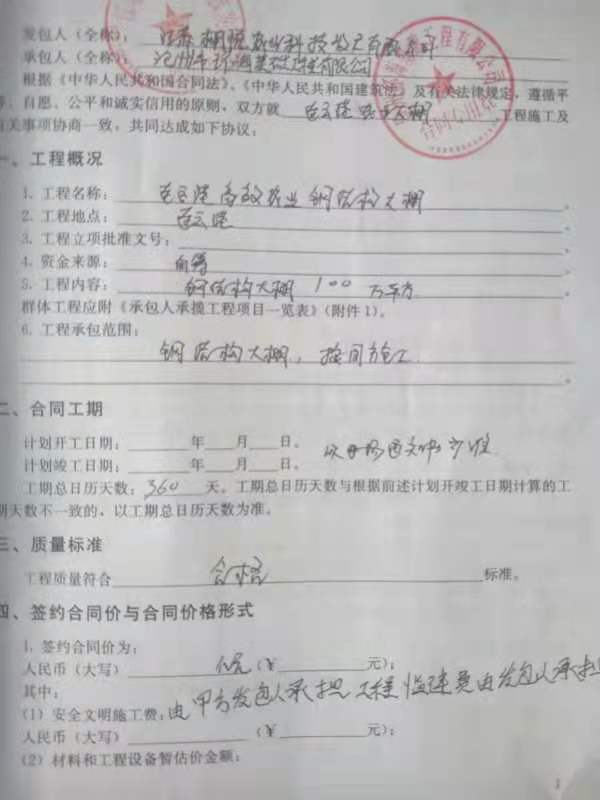 发包人（全称）：
承包人（全称）：
根据《中华人民共和国合同法》、《中华人民共和国建筑法》及有关法律规定，遵循平
等、自愿、公平和诚实信用的原则，双方就 大棚 工程施工及
有关事项协商一致，共同达成如下协议：
一、工程概况
1. 工程名称： 连云港高效农业钢结构大棚 。
2. 工程地点： 连云港 。
3. 工程立项批准文号： 。
4. 资金来源： 自筹 。
5. 工程内容： 钢结构大棚 100 万平方 。
群体工程应附《承包人承揽工程项目一览表》（附件1）。
6. 工程承包范围：
钢结构大棚，按图施工
。
二、合同工期
计划开工日期： 年 月 日。
计划竣工日期： 年 月 日。 以开
工期总日历天数：360 天。工期总日历天数与根据前述计划开竣工日期计算的工
期天数不一致的，以工期总日历天数为准。
三、质量标准
工程质量符合 合格 标准。
四、签约合同价与合同价格形式
1. 签约合同价为：
人民币（大写） （¥ 元）；
其中： 由甲方发包人承担 工程 费由发包人承担
（1）安全文明施工费：
人民币（大写） （¥ 元）；
（2）材料和工程设备暂估价金额：
1